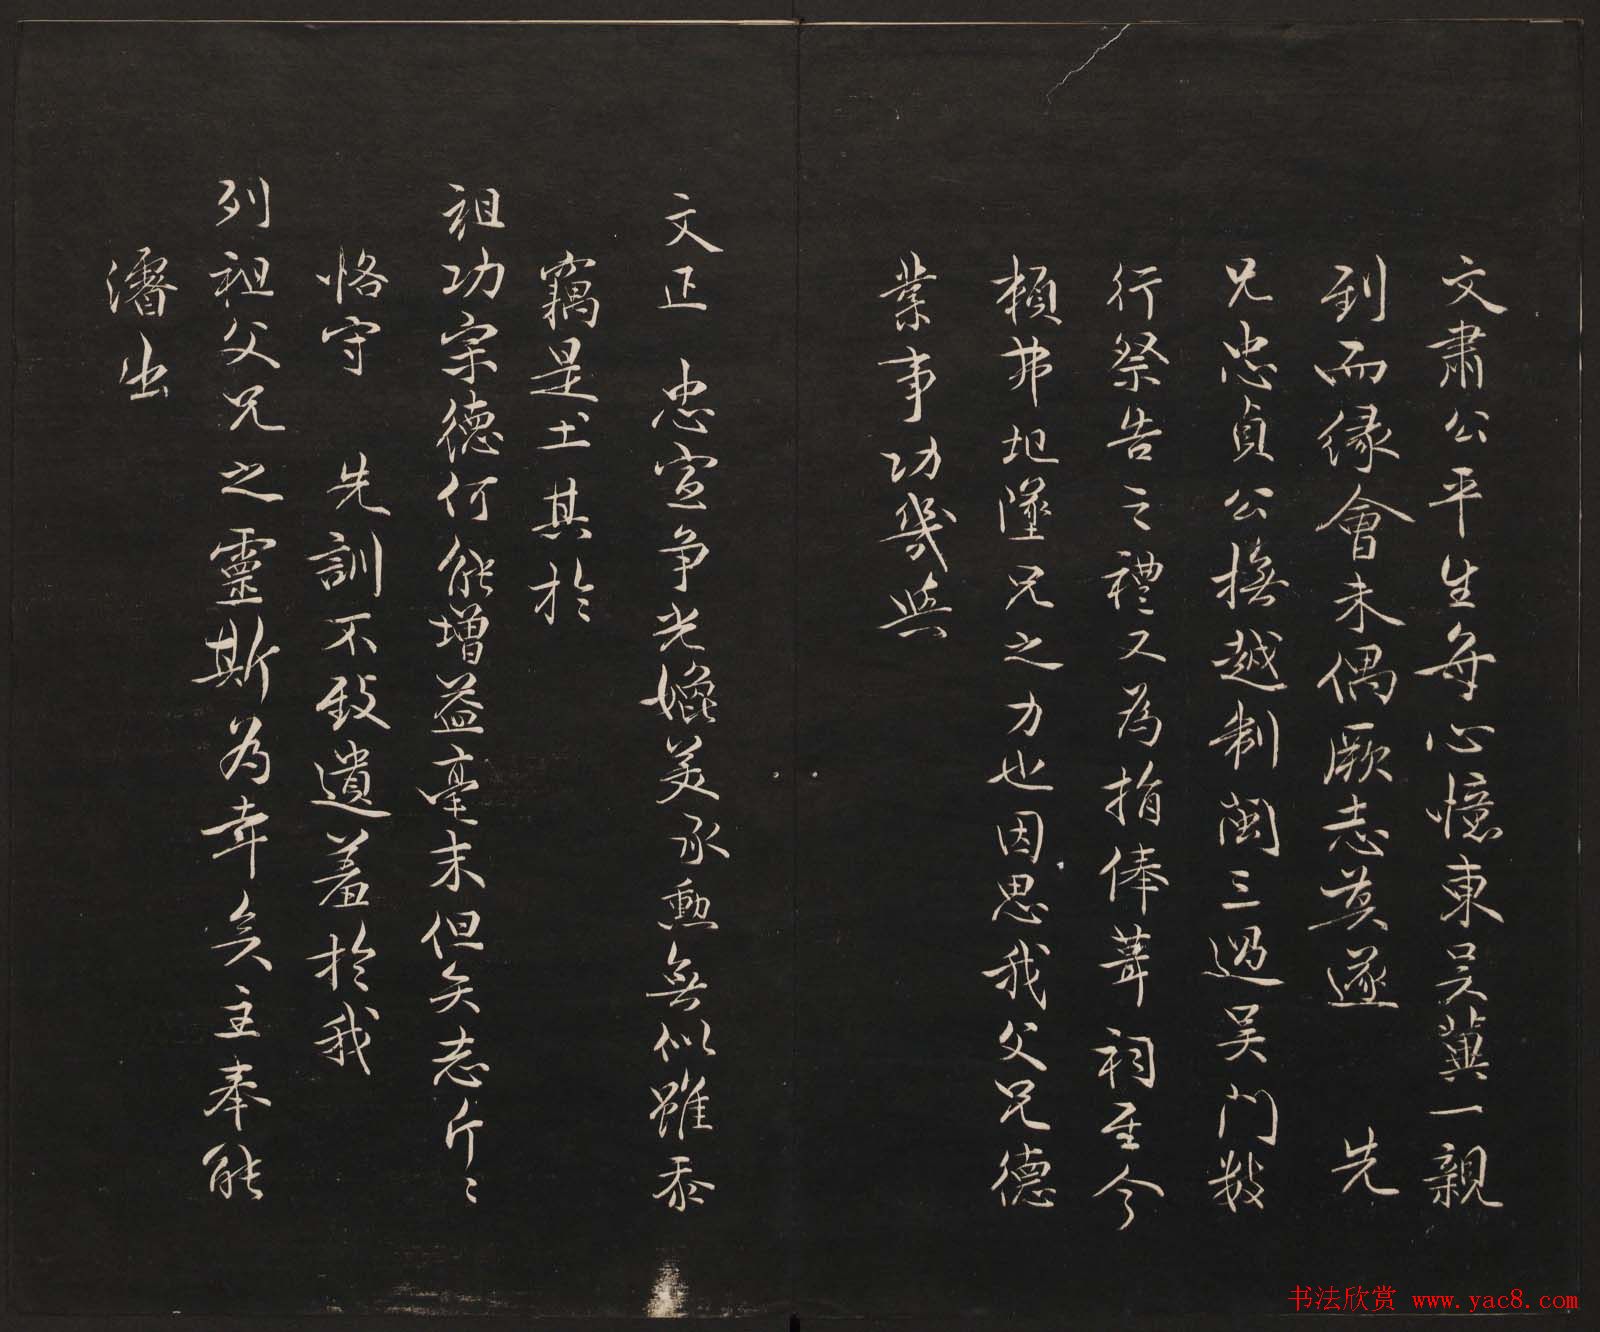 文肅公平生每心憶東吳冀一親
到而緣會未偶厥志莫遂 先
兄忠貞公撫越制閩三過吳門數
行祭告之禮又為捐俸葺祠至今
頼弗圮墜兄之力也因思我父兄德
業事功幾與
文正 忠宣爭光媲美承勳無似雖忝
竊是土其於
祖功宗德何能增益毫末但矢志斤〻
恪守 先訓不致遺羞於我
列祖父兄之靈斯為幸矣主奉能
濬出
书法欣赏 www.yac8.com